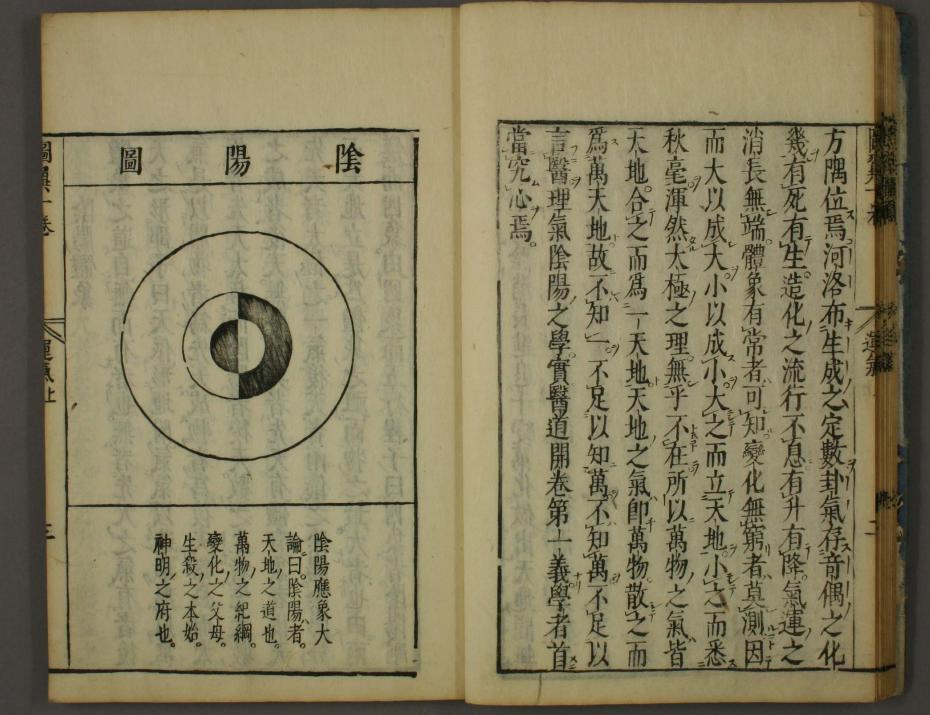 方隅位焉河洛布生成之定數卦氣存竒偶之化
幾有死有生造化之流行不息有升有降氣運之
消長無端體象有常者可知變化無窮者莫測因
而大以成大小以成小大之而立天地小之而悉
秋毫渾然太極之理無乎不在所以萬物之氣皆
天地合之而爲一天地天地之氣卽萬物散之而
爲萬天地故不知一不足以知萬不知萬不足以
言醫理氣陰陽之學實醫道開卷第一義學者首
當究心焉
運氣
二
圖翼一卷
運氣上
三
陰陽圖
陰陽應象大
論曰陰陽者
天地之道也
萬物之紀綱
變化之父母
生殺之本始
神明之府也